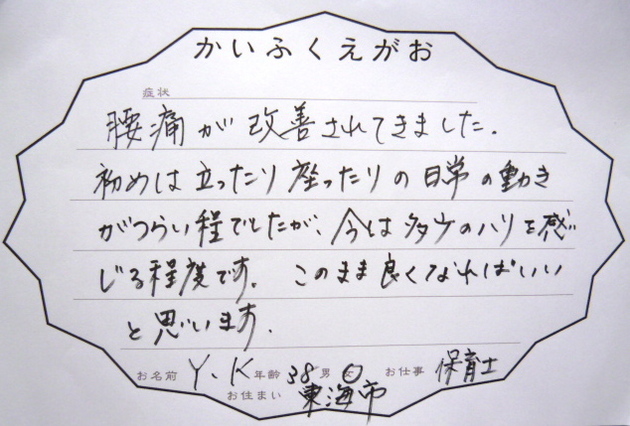 かいふくえがお
症状
腰痛が改善されてきました。
初めは立ったり座ったりの日常の動き
がつらい程でしたが、今は多少のハリを感
じる程度です。このまま良くなればいい
と思います。
お名前 Y.K 年齢 38 男 女 お仕事 保育士
お住まい 東海市